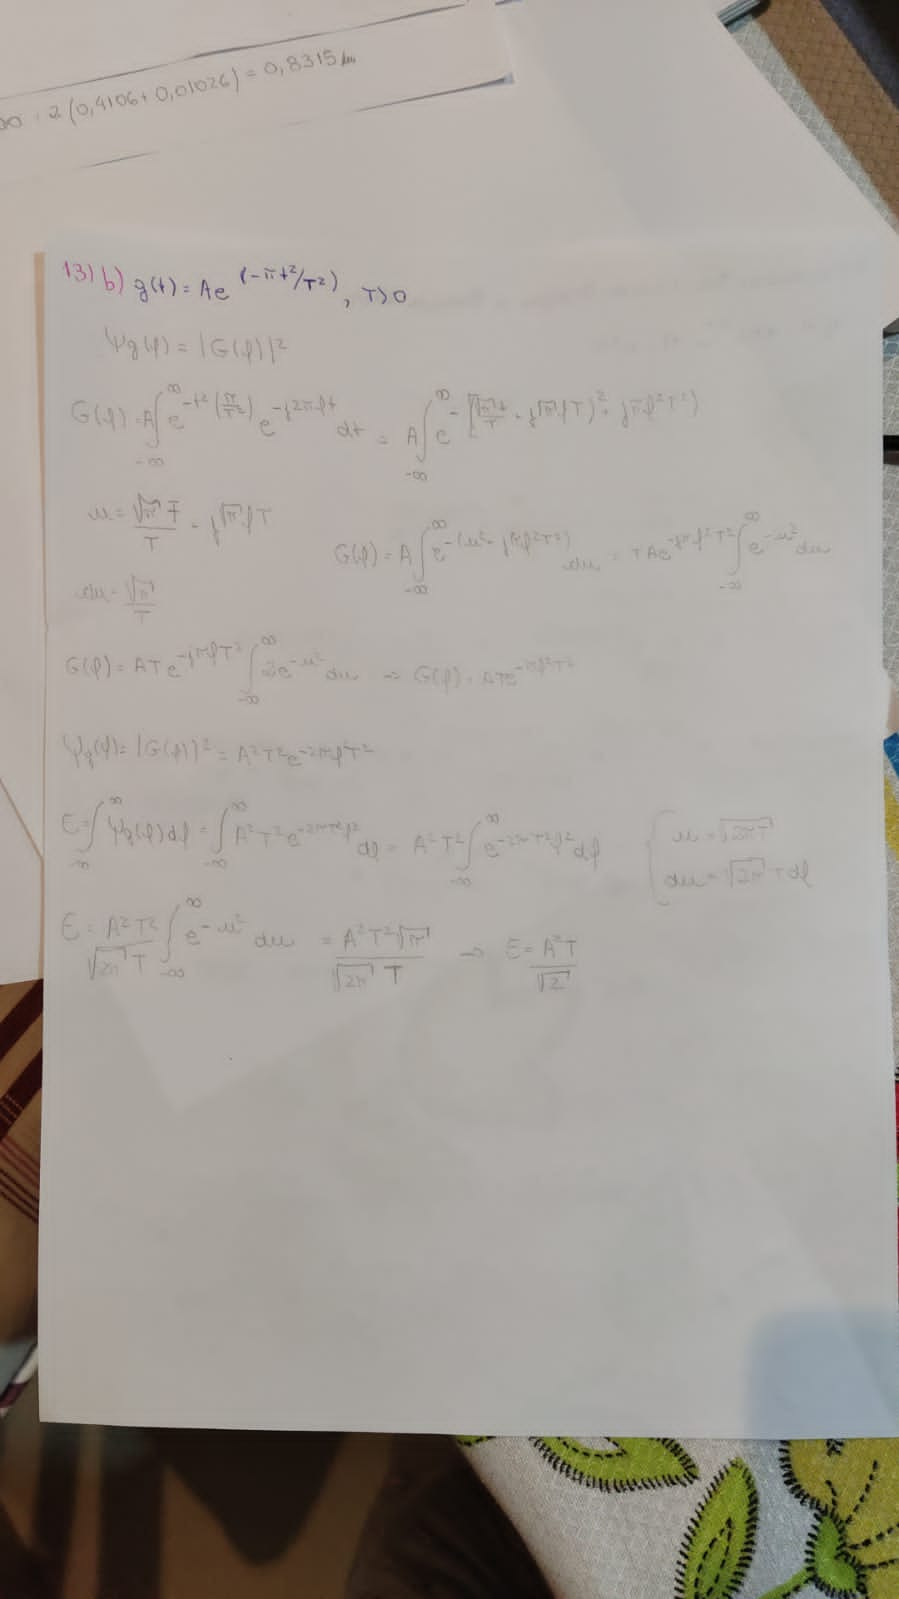 00 : 2 (0,4106 + 0,01026) = 0,8315
13) b) g(t) = Ae^(-πt²/T²), T>0
Ψg(f) = |G(f)|²
G(f) = A∫_{-∞}^{∞} e^{-t²(π/T²)} e^{-j2πft} dt = A∫_{-∞}^{∞} e^{-[(√π t/T + j√π fT)² + jπf²T²]}
u = √π t/T + j√π fT
G(f) = A∫_{-∞}^{∞} e^{-(u² + jπf²T²)} du = TAe^{-jπf²T²} ∫_{-∞}^{∞} e^{-u²} du
du = √π/T
G(f) = ATe^{-jπfT²} ∫_{-∞}^{∞} e^{-u²} du → G(f) = ATe^{-πf²T²}
Ψg(f) = |G(f)|² = A²T²e^{-2πf²T²}
E = ∫_{-∞}^{∞} Ψg(f)df = ∫_{-∞}^{∞} A²T²e^{-2πT²f²} df = A²T² ∫_{-∞}^{∞} e^{-2πT²f²} df
{ u = √2πT
du = √2π T df
E = A²T²/√2π T ∫_{-∞}^{∞} e^{-u²} du = A²T²√π/√2π T → E = A²T/√2